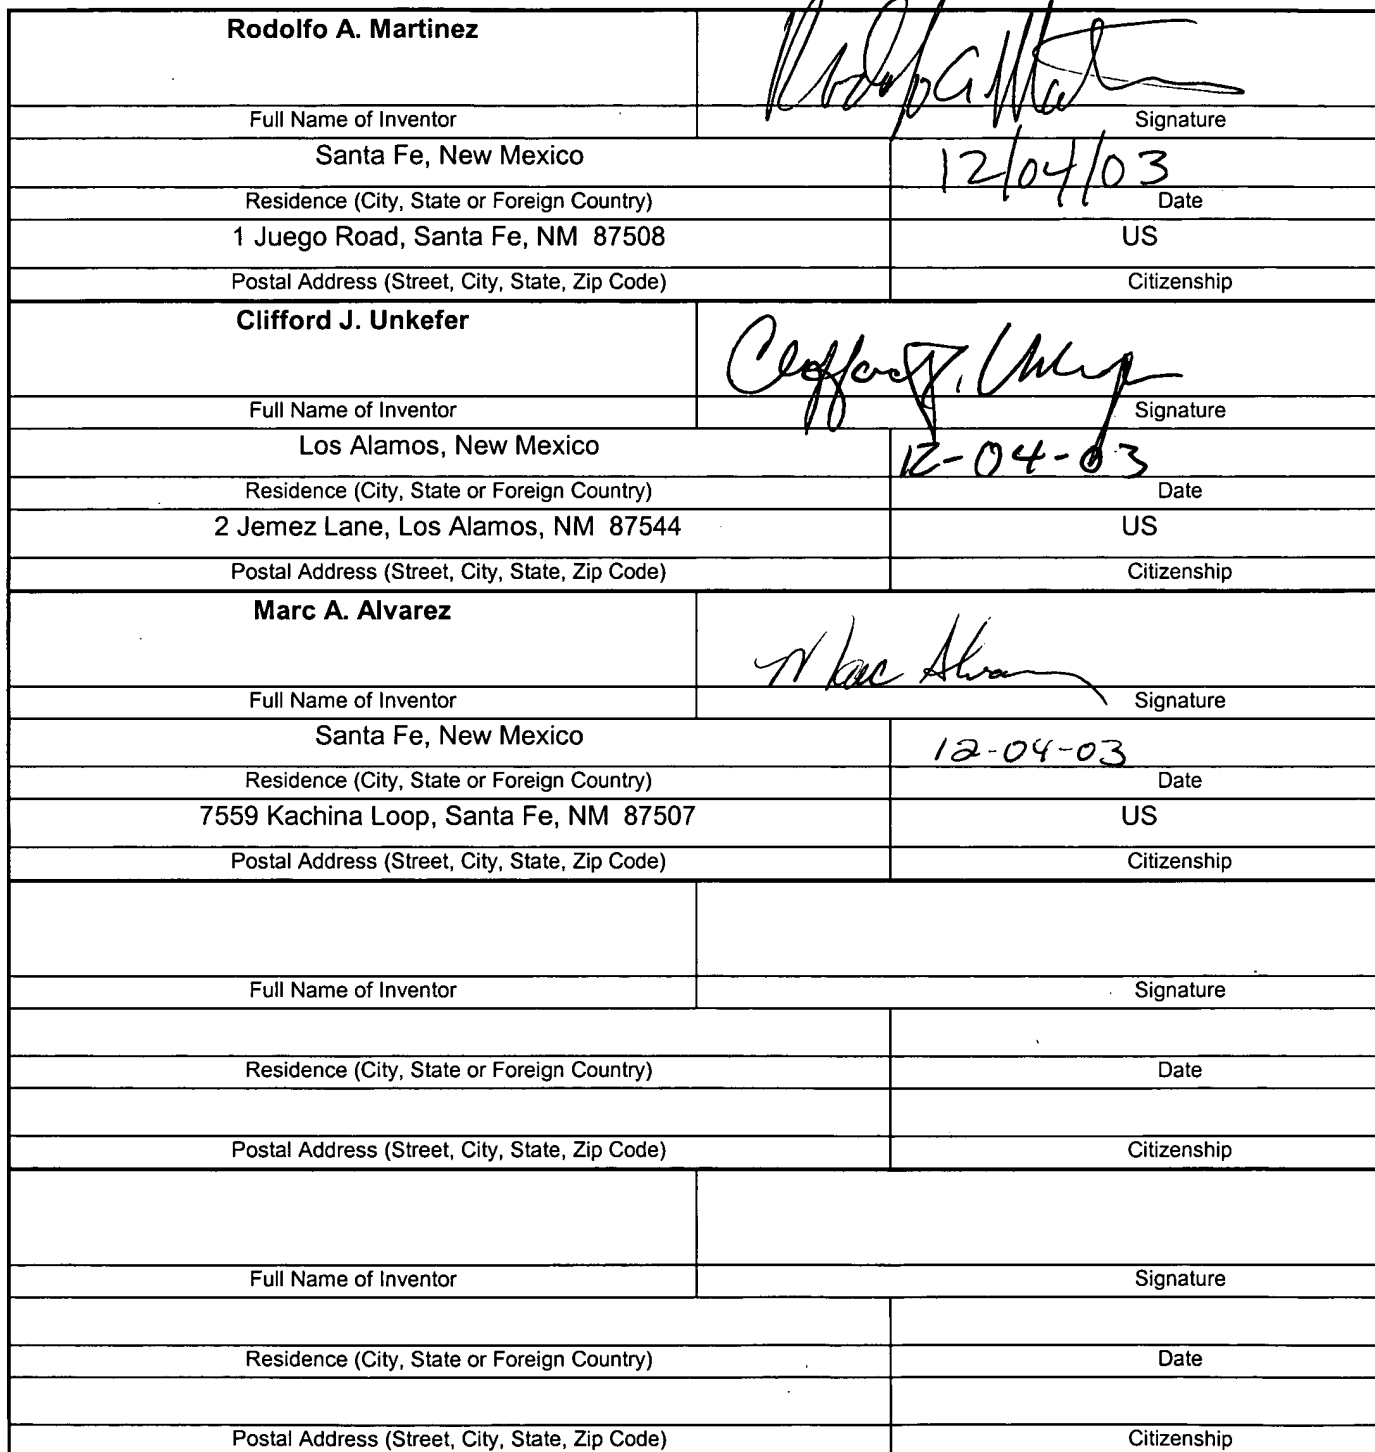 Rodolfo A. Martinez
Rodolfo A Mart
Full Name of Inventor Signature
Santa Fe, New Mexico 12/04/03
Residence (City, State or Foreign Country) Date
1 Juego Road, Santa Fe, NM 87508 US
Postal Address (Street, City, State, Zip Code) Citizenship
Clifford J. Unkefer
Clifford J. Unkefer
Full Name of Inventor Signature
Los Alamos, New Mexico 12-04-03
Residence (City, State or Foreign Country) Date
2 Jemez Lane, Los Alamos, NM 87544 US
Postal Address (Street, City, State, Zip Code) Citizenship
Marc A. Alvarez
Marc Alvarez
Full Name of Inventor Signature
Santa Fe, New Mexico 12-04-03
Residence (City, State or Foreign Country) Date
7559 Kachina Loop, Santa Fe, NM 87507 US
Postal Address (Street, City, State, Zip Code) Citizenship
Full Name of Inventor Signature
Residence (City, State or Foreign Country) Date
Postal Address (Street, City, State, Zip Code) Citizenship
Full Name of Inventor Signature
Residence (City, State or Foreign Country) Date
Postal Address (Street, City, State, Zip Code) Citizenship